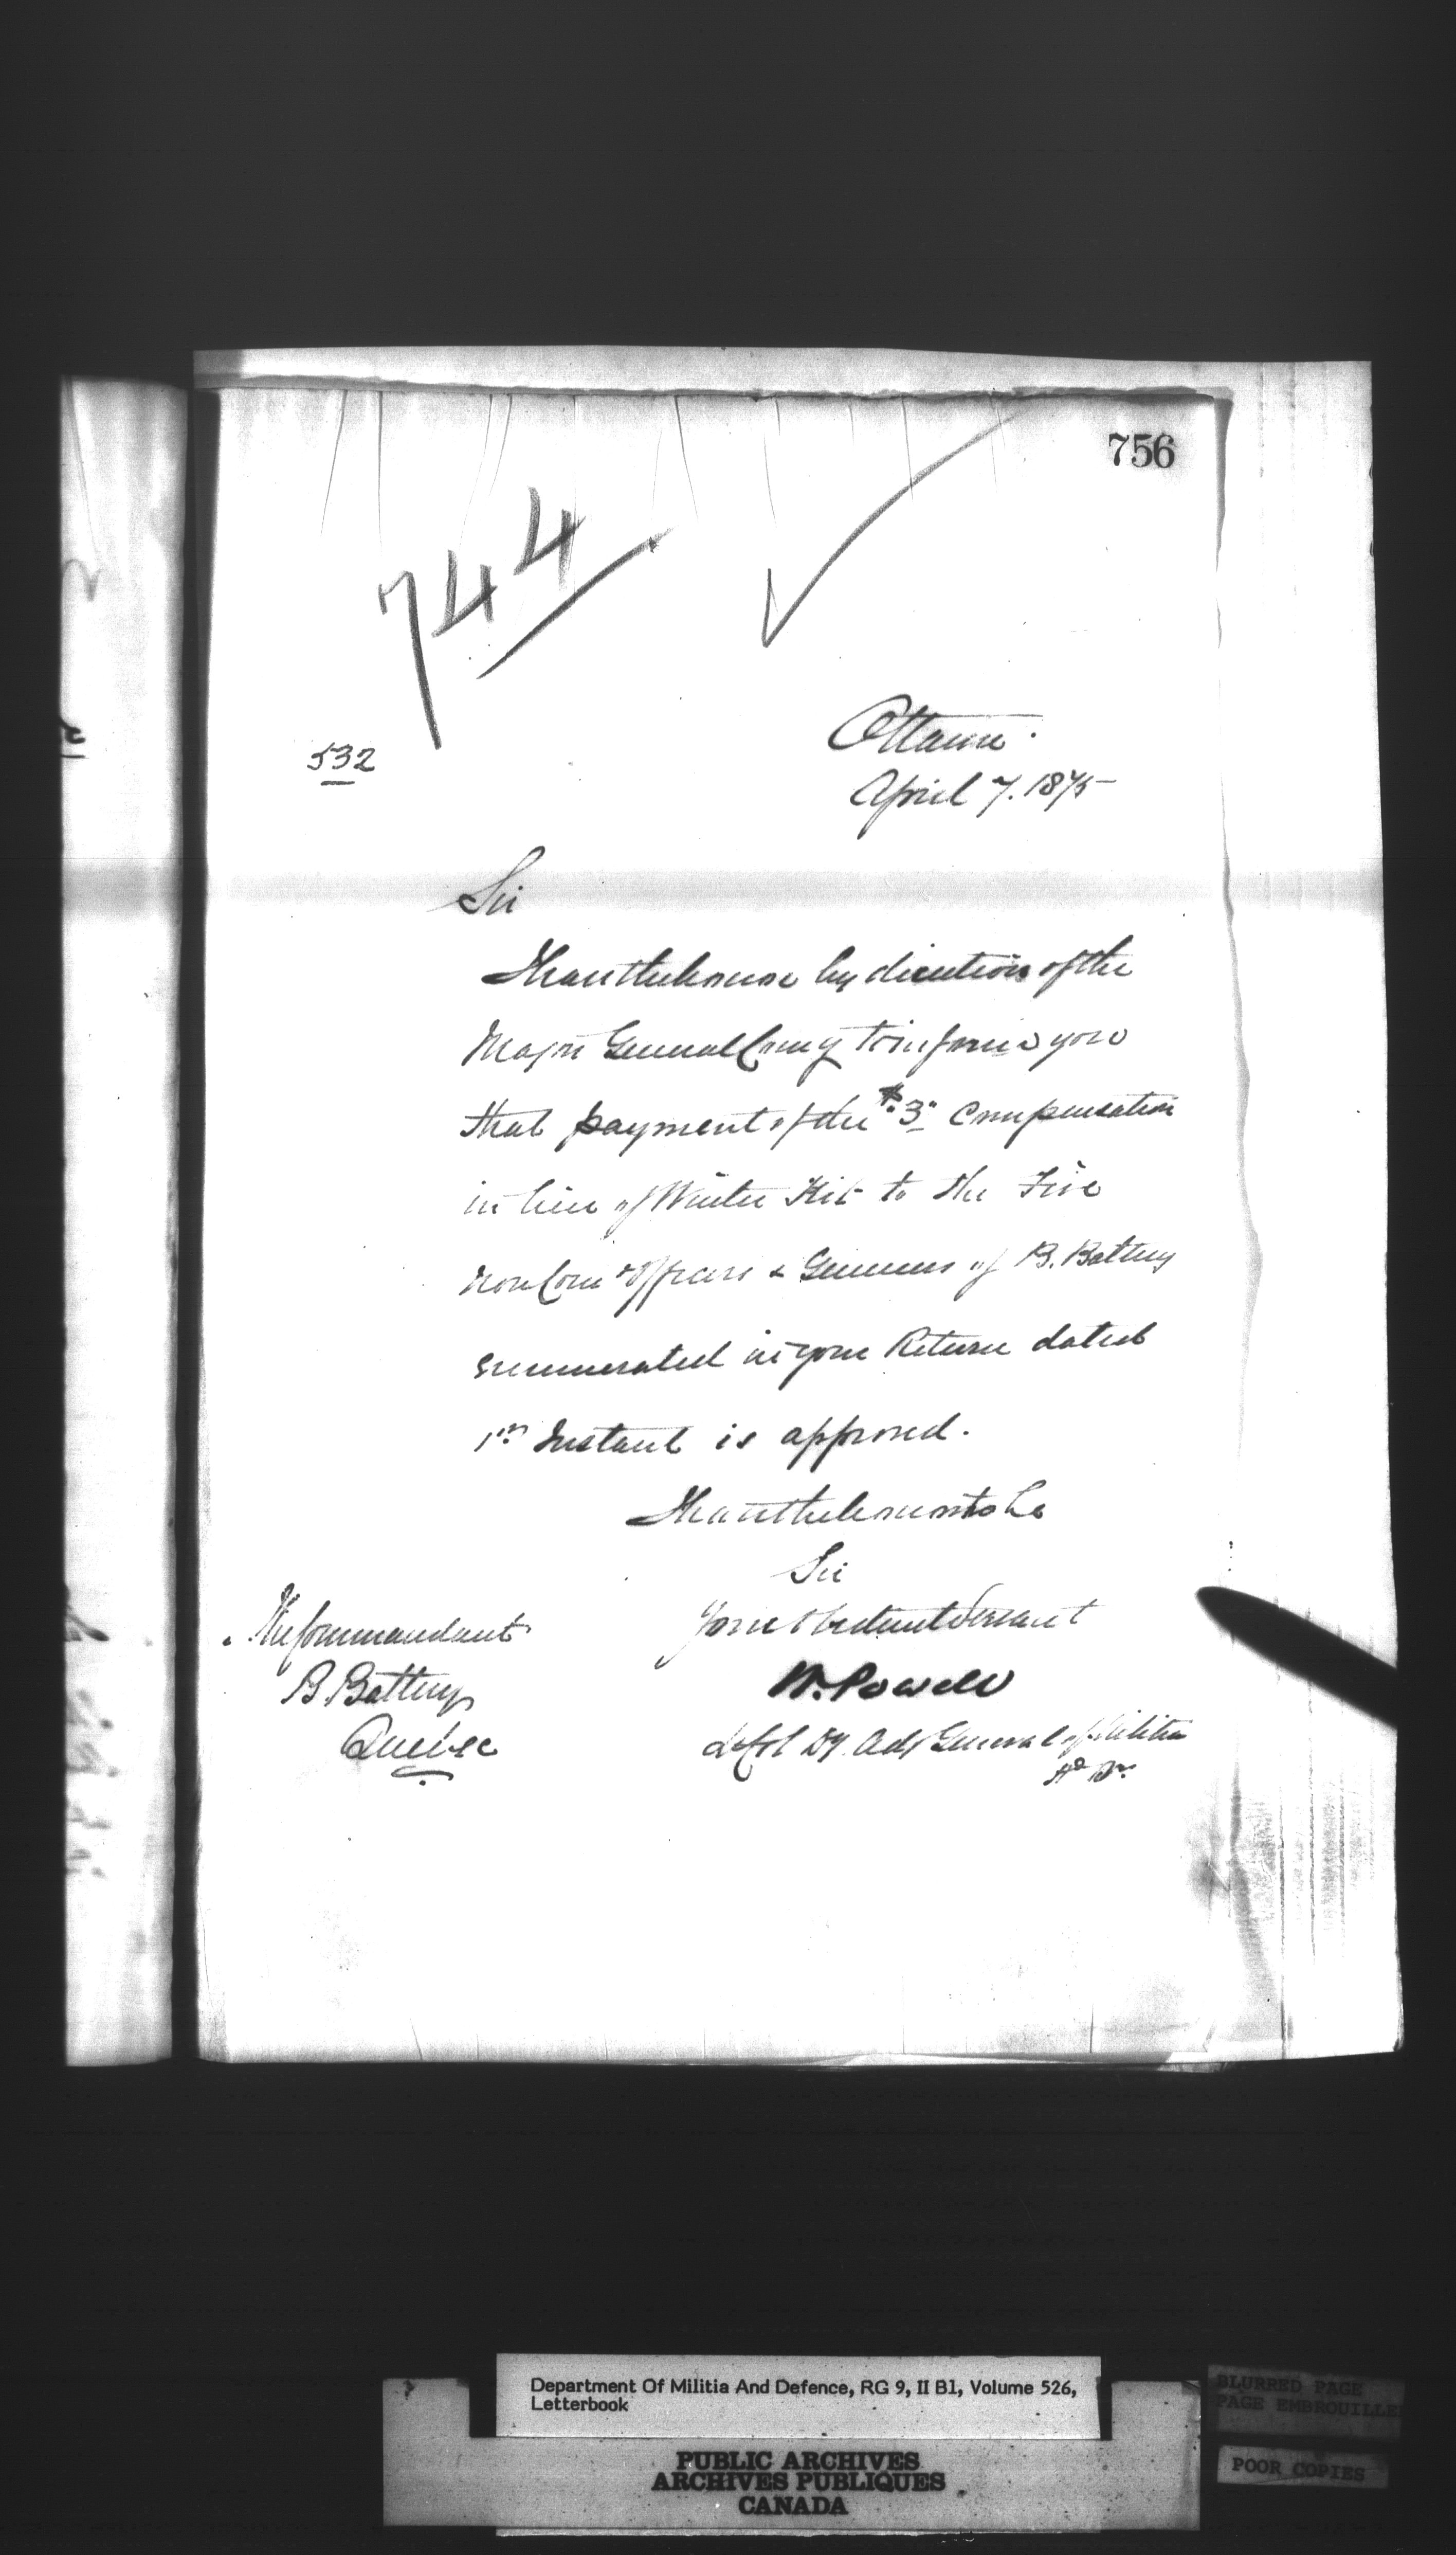 756
744
532
Ottawa.
April 7. 1875
Sir
I have the honor by direction of the
Major General Comg to inform you
that payment of the $3 Compensation
in lieu of Winter Kit to the Five
Non Com Officers & Gunners of B. Battery
enumerated in your Return dated
1st Instant is approved.
I have the honor to be
Sir
Your Obedient Servant
W. Powell
Lt Col Dy. Adj General of Militia
Hd Qrs
The Commandant
B. Battery
Quebec
Department Of Militia And Defence, RG 9, II B1, Volume 526,
Letterbook
PUBLIC ARCHIVES
ARCHIVES PUBLIQUES
CANADA
BLURRED PAGE
PAGE EMBROUILLE
POOR COPIES